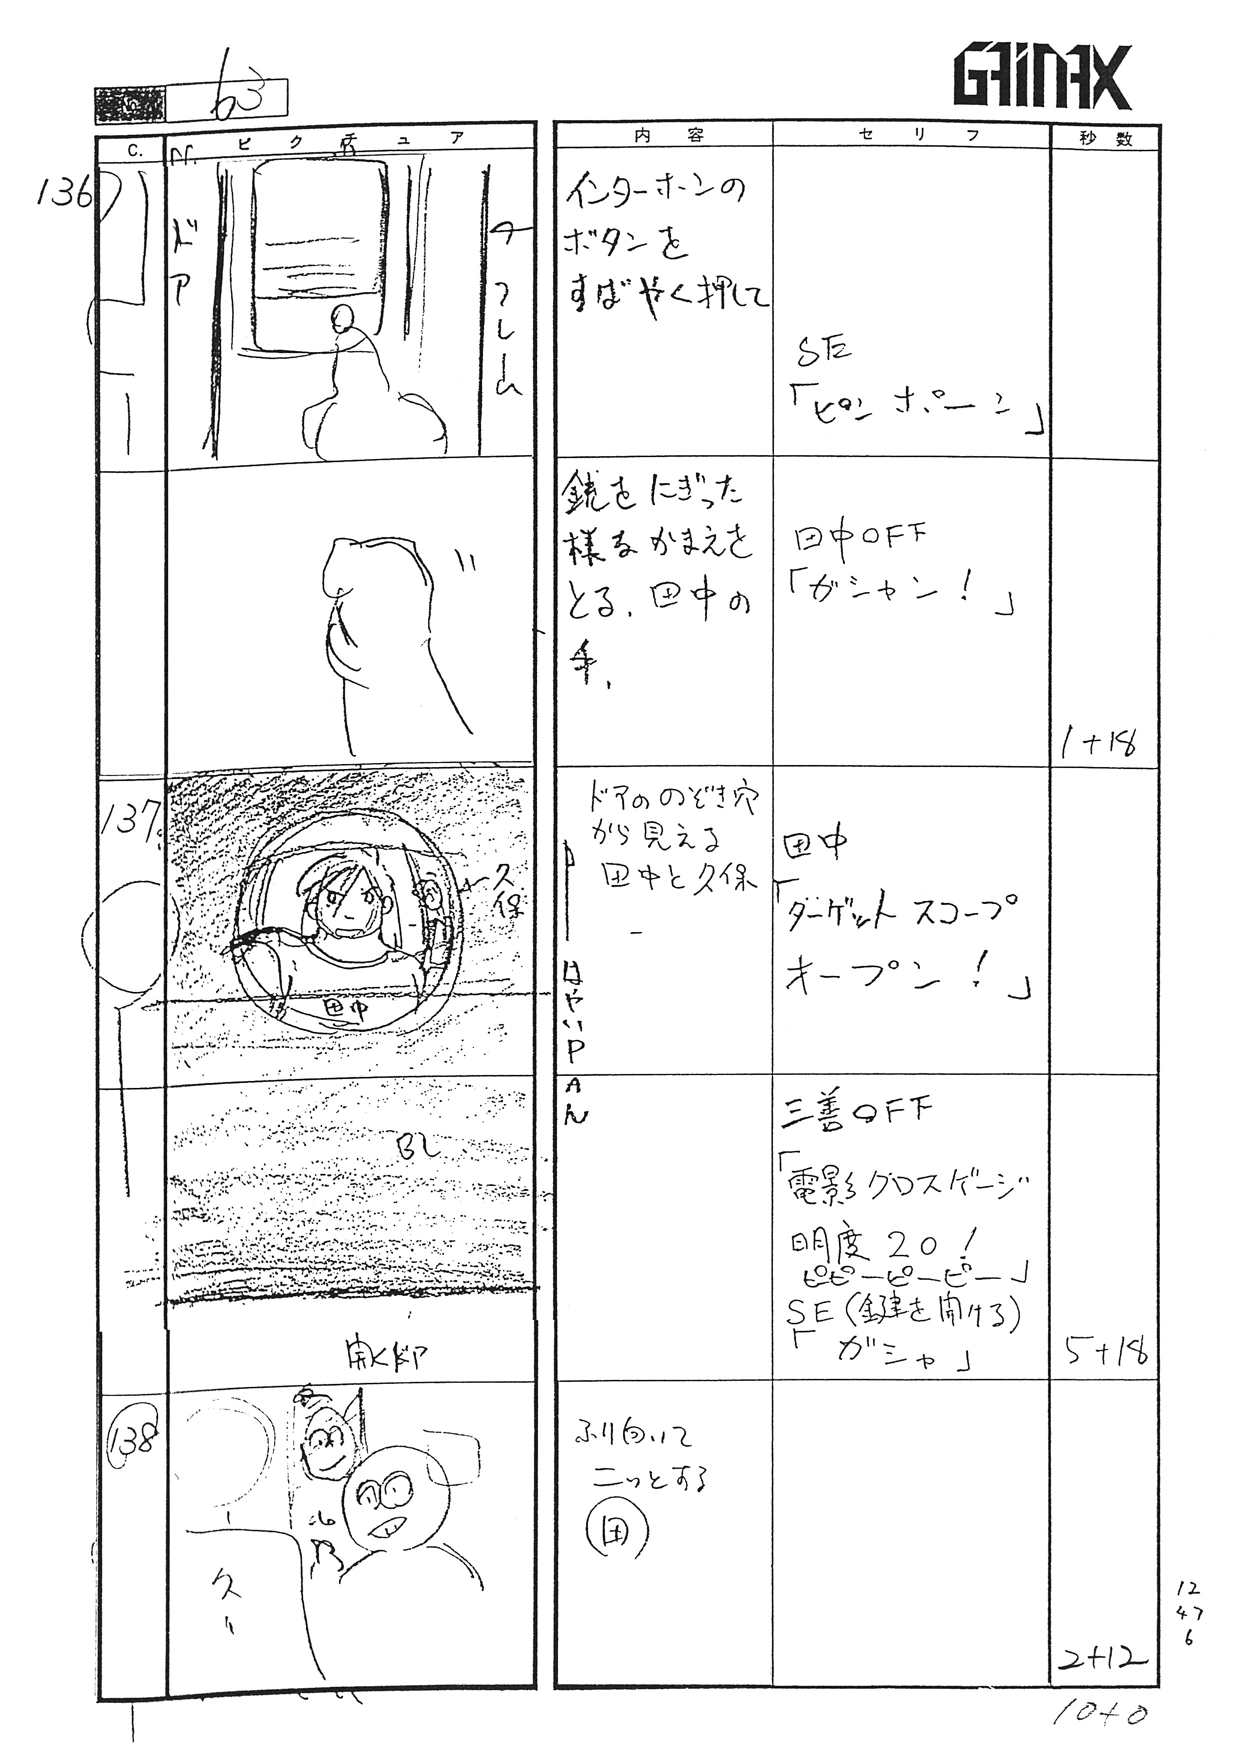 GAINAX
No.
63
C.
ピクチュア
内容
セリフ
秒数
136
ドア
フレーム
インターホーンの
ボタンを
すばやく押して
SE
「ピンポーン」
銃をにぎった
様なかまえを
とる、田中の
手、
田中OFF
「ガシャン!」
1+18
137
久保
田中
ドアののぞき穴
から見える
田中と久保
はやいPAん
田中
「ターゲットスコープ
オープン!」
BL
三善OFF
「電影クロスゲージ
明度20!
ピピーピーピー」
SE(鍵を開ける)
「ガシャ」
5+18
開くドア
138
久
ふり向いて
ニッとする
田
2+12
12
47
6
10+0